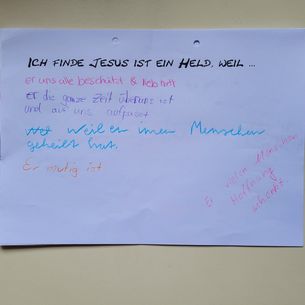 ICH FINDE JESUS IST EIN HELD, WEIL ...
er uns alle beschützt & lieb hat
er die ganze Zeit über uns ist
und auf uns aufpasst
weil er
Menschen
geheilt hat.
Er mutig ist
Er vielen Menschen
Hoffnung
schenkt